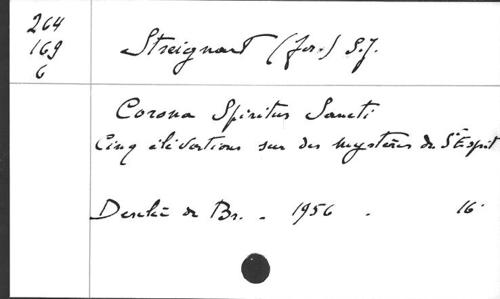 264
169
6
Streignart (Jos.) S.J.
Corona Spiritus Sancti
Cinq élévations sur des mystères du St Esprit
Desclée de Br. - 1956 - 16°